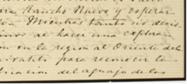 Rancho Nuevo y esperar
Mientras tanto no decir
al hacer una explora
en la región al Oriente del
para reconocer la
del aguaje de los